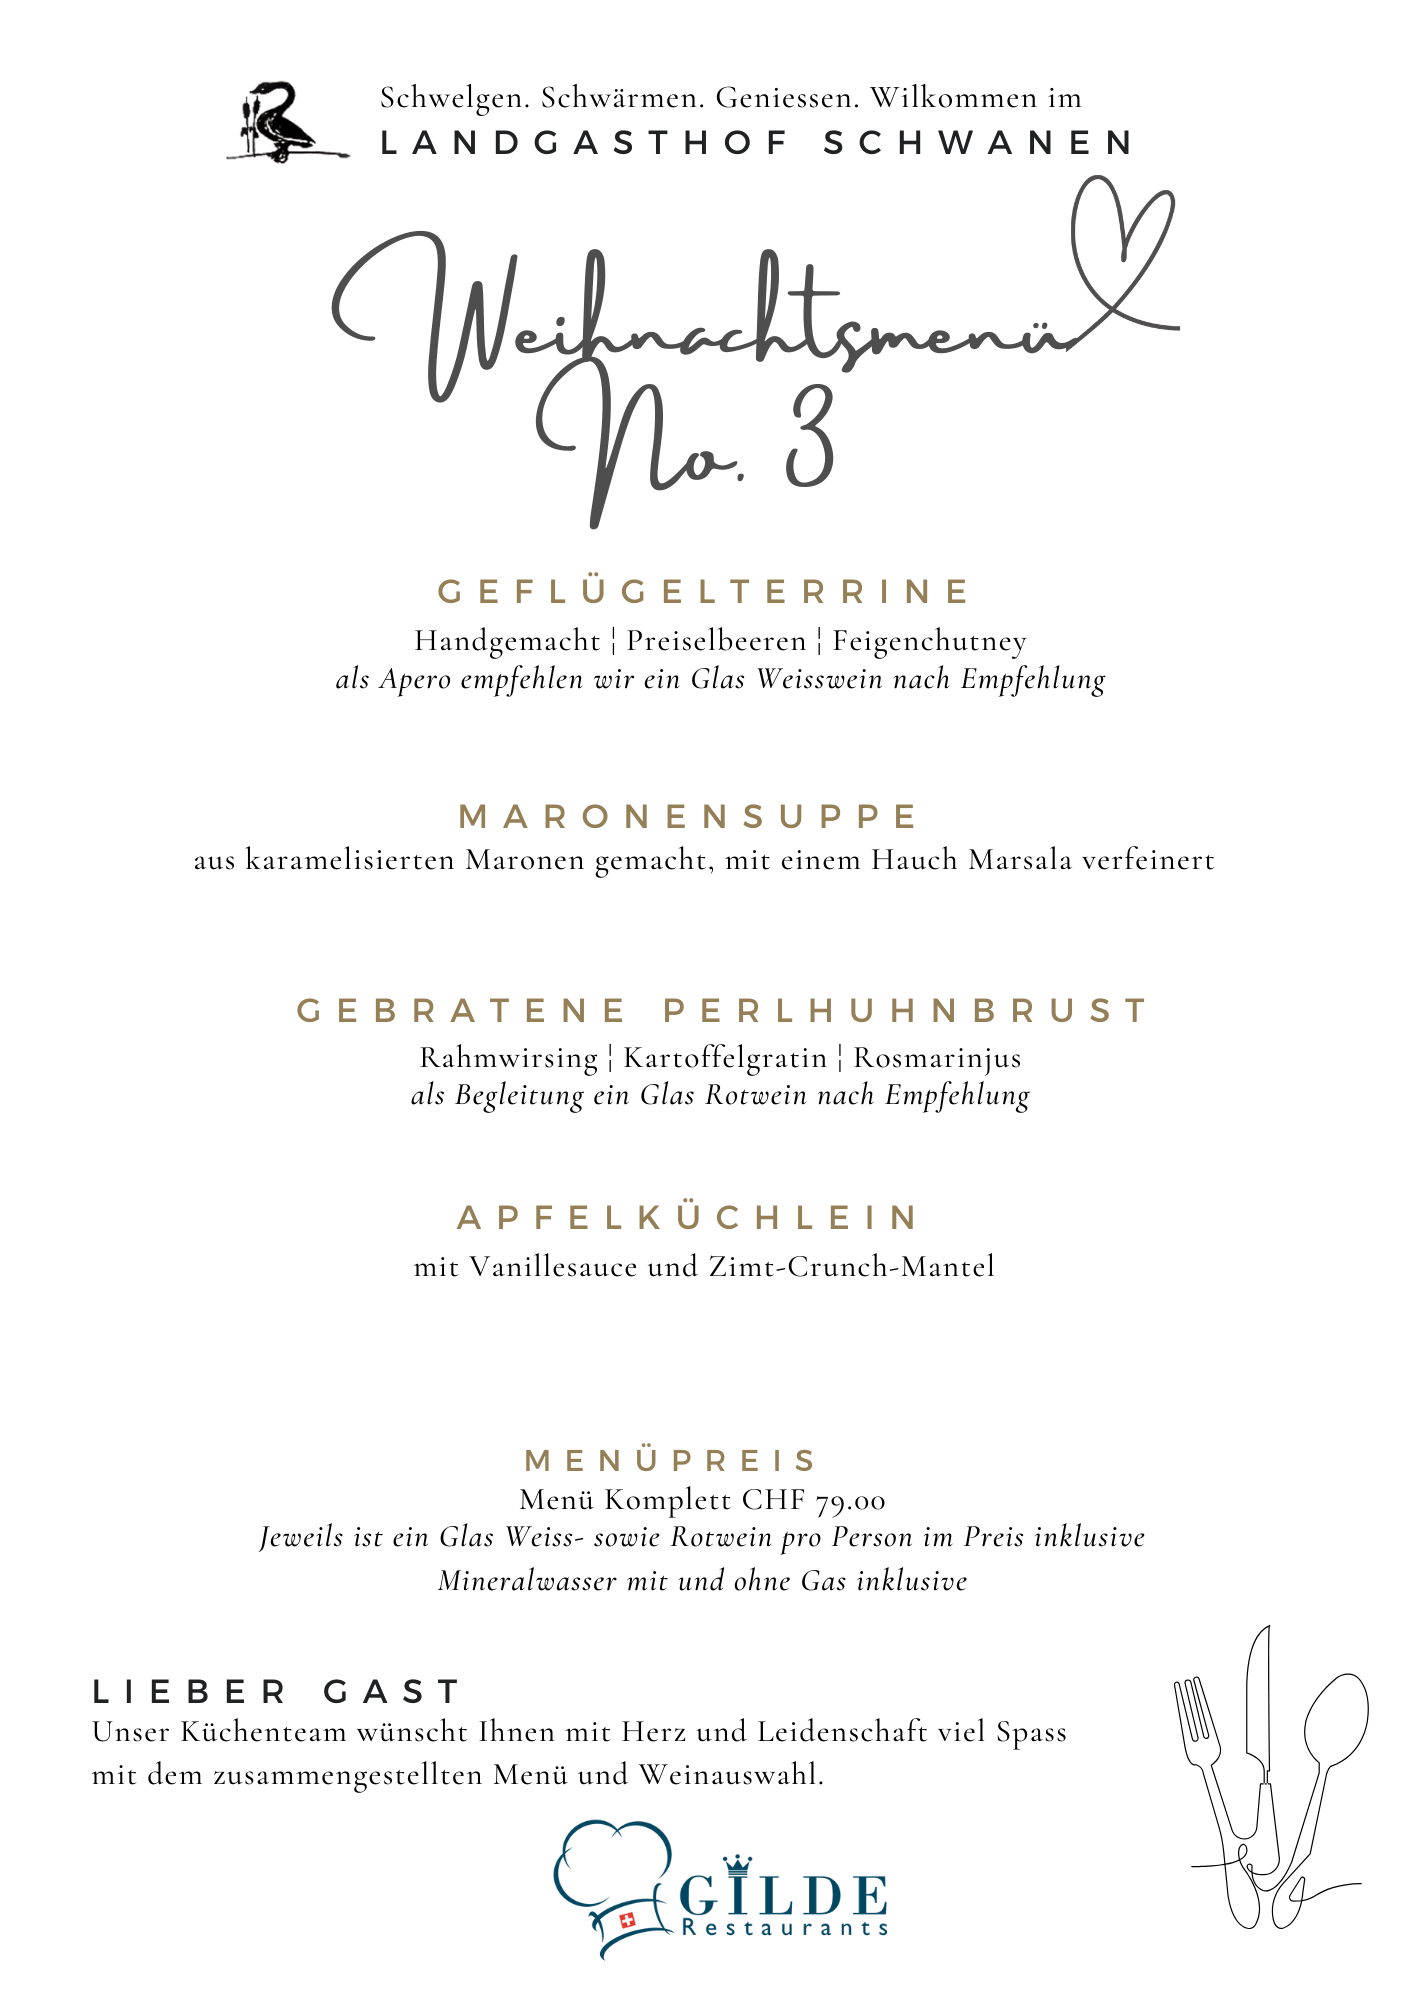 Schwelgen. Schwärmen. Geniessen. Wilkommen im
LANDGASTHOF SCHWANEN
Weihnachtsmenü
No. 3
GEFLÜGELTERRINE
Handgemacht ¦ Preiselbeeren ¦ Feigenchutney
als Apero empfehlen wir ein Glas Weisswein nach Empfehlung
MARONENSUPPE
aus karamelisierten Maronen gemacht, mit einem Hauch Marsala verfeinert
GEBRATENE PERLHUHNBRUST
Rahmwirsing ¦ Kartoffelgratin ¦ Rosmarinjus
als Begleitung ein Glas Rotwein nach Empfehlung
APFELKÜCHLEIN
mit Vanillesauce und Zimt-Crunch-Mantel
MENÜPREIS
Menü Komplett CHF 79.00
Jeweils ist ein Glas Weiss- sowie Rotwein pro Person im Preis inklusive
Mineralwasser mit und ohne Gas inklusive
LIEBER GAST
Unser Küchenteam wünscht Ihnen mit Herz und Leidenschaft viel Spass
mit dem zusammengestellten Menü und Weinauswahl.
GILDE
Restaurants